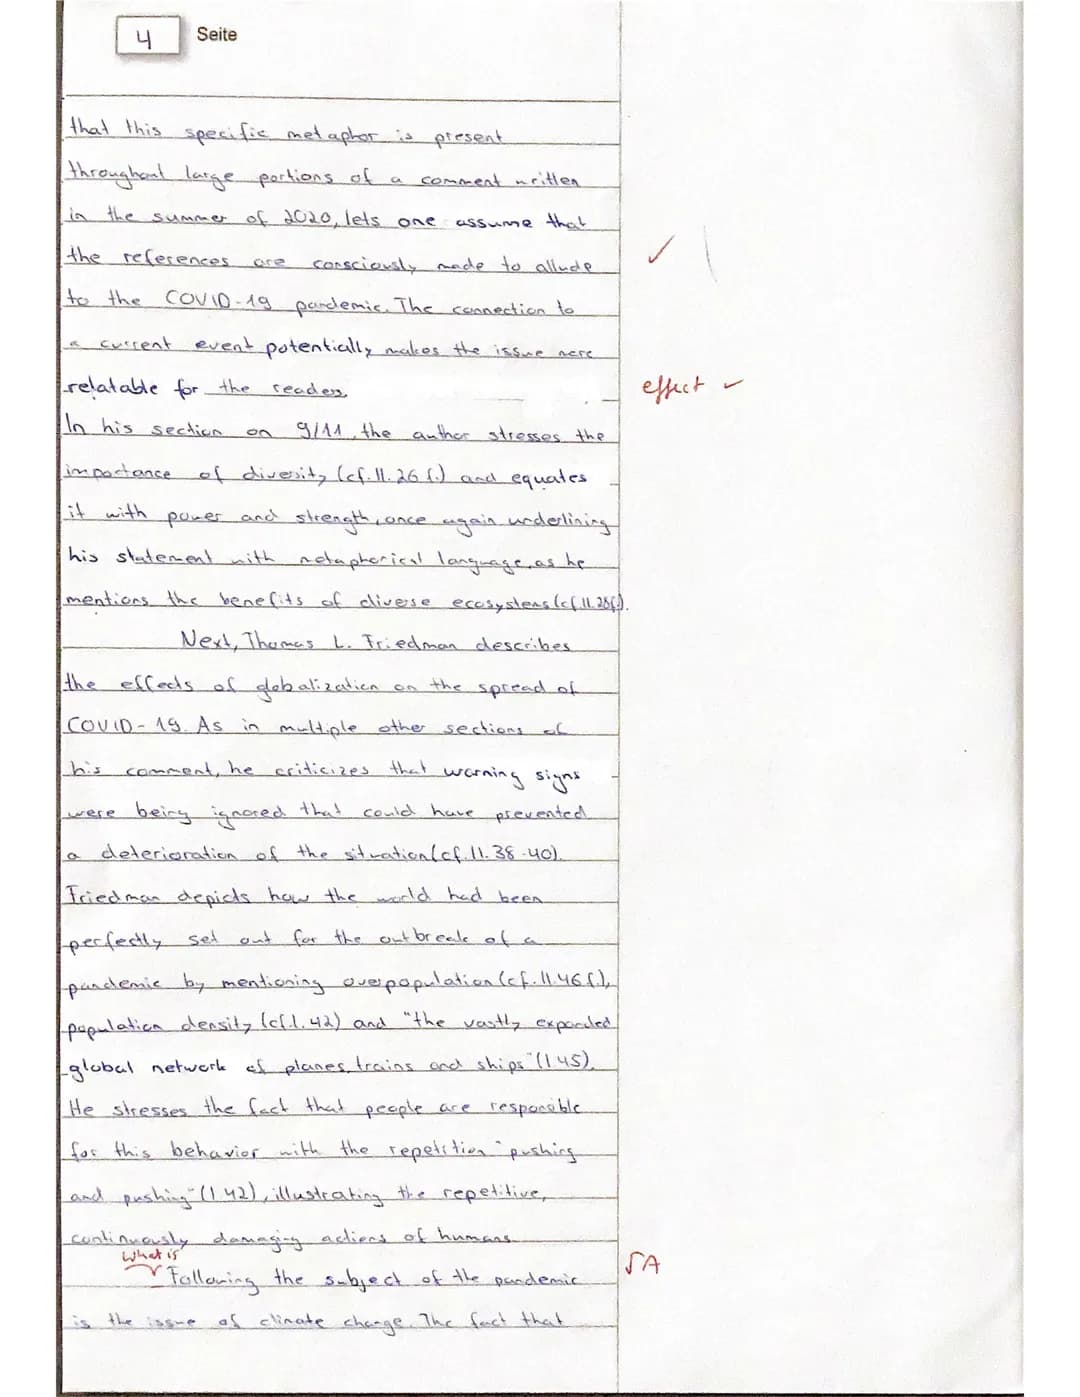 4 Seite
that this specific metaphor is present
throughout large portions of a comment written
in the summer of 2020, lets one assume that
the references are consciously made to allude
to the COVID-19 pandemic. The connection to
a current event potentially makes the issue more
relatable for the reader.
effect ✓
In his section on 9/11, the author stresses the
importance of diversity (cf. ll. 26 f.) and equates
it with power and strength, once again underlining
his statement with metaphorical language, as he
mentions the benefits of diverse ecosystems (cf. ll. 28f.).
Next, Thomas L. Friedman describes
the effects of globalization on the spread of
COVID-19. As in multiple other sections of
his comment, he criticizes that warning signs
were being ignored that could have prevented
a deterioration of the situation (cf. ll. 38-40).
Friedman depicts how the world had been
perfectly set out for the outbreak of a
pandemic by mentioning overpopulation (cf. ll. 46 f.),
population density (cf. l. 42) and "the vastly expanded
global network of planes, trains and ships" (l. 45).
He stresses the fact that people are responsible
for this behavior with the repetition "pushing
and pushing" (l. 42), illustrating the repetitive,
continuously damaging actions of humans.
What is
Following the subject of the pandemic
√A
is the issue of climate change. The fact that